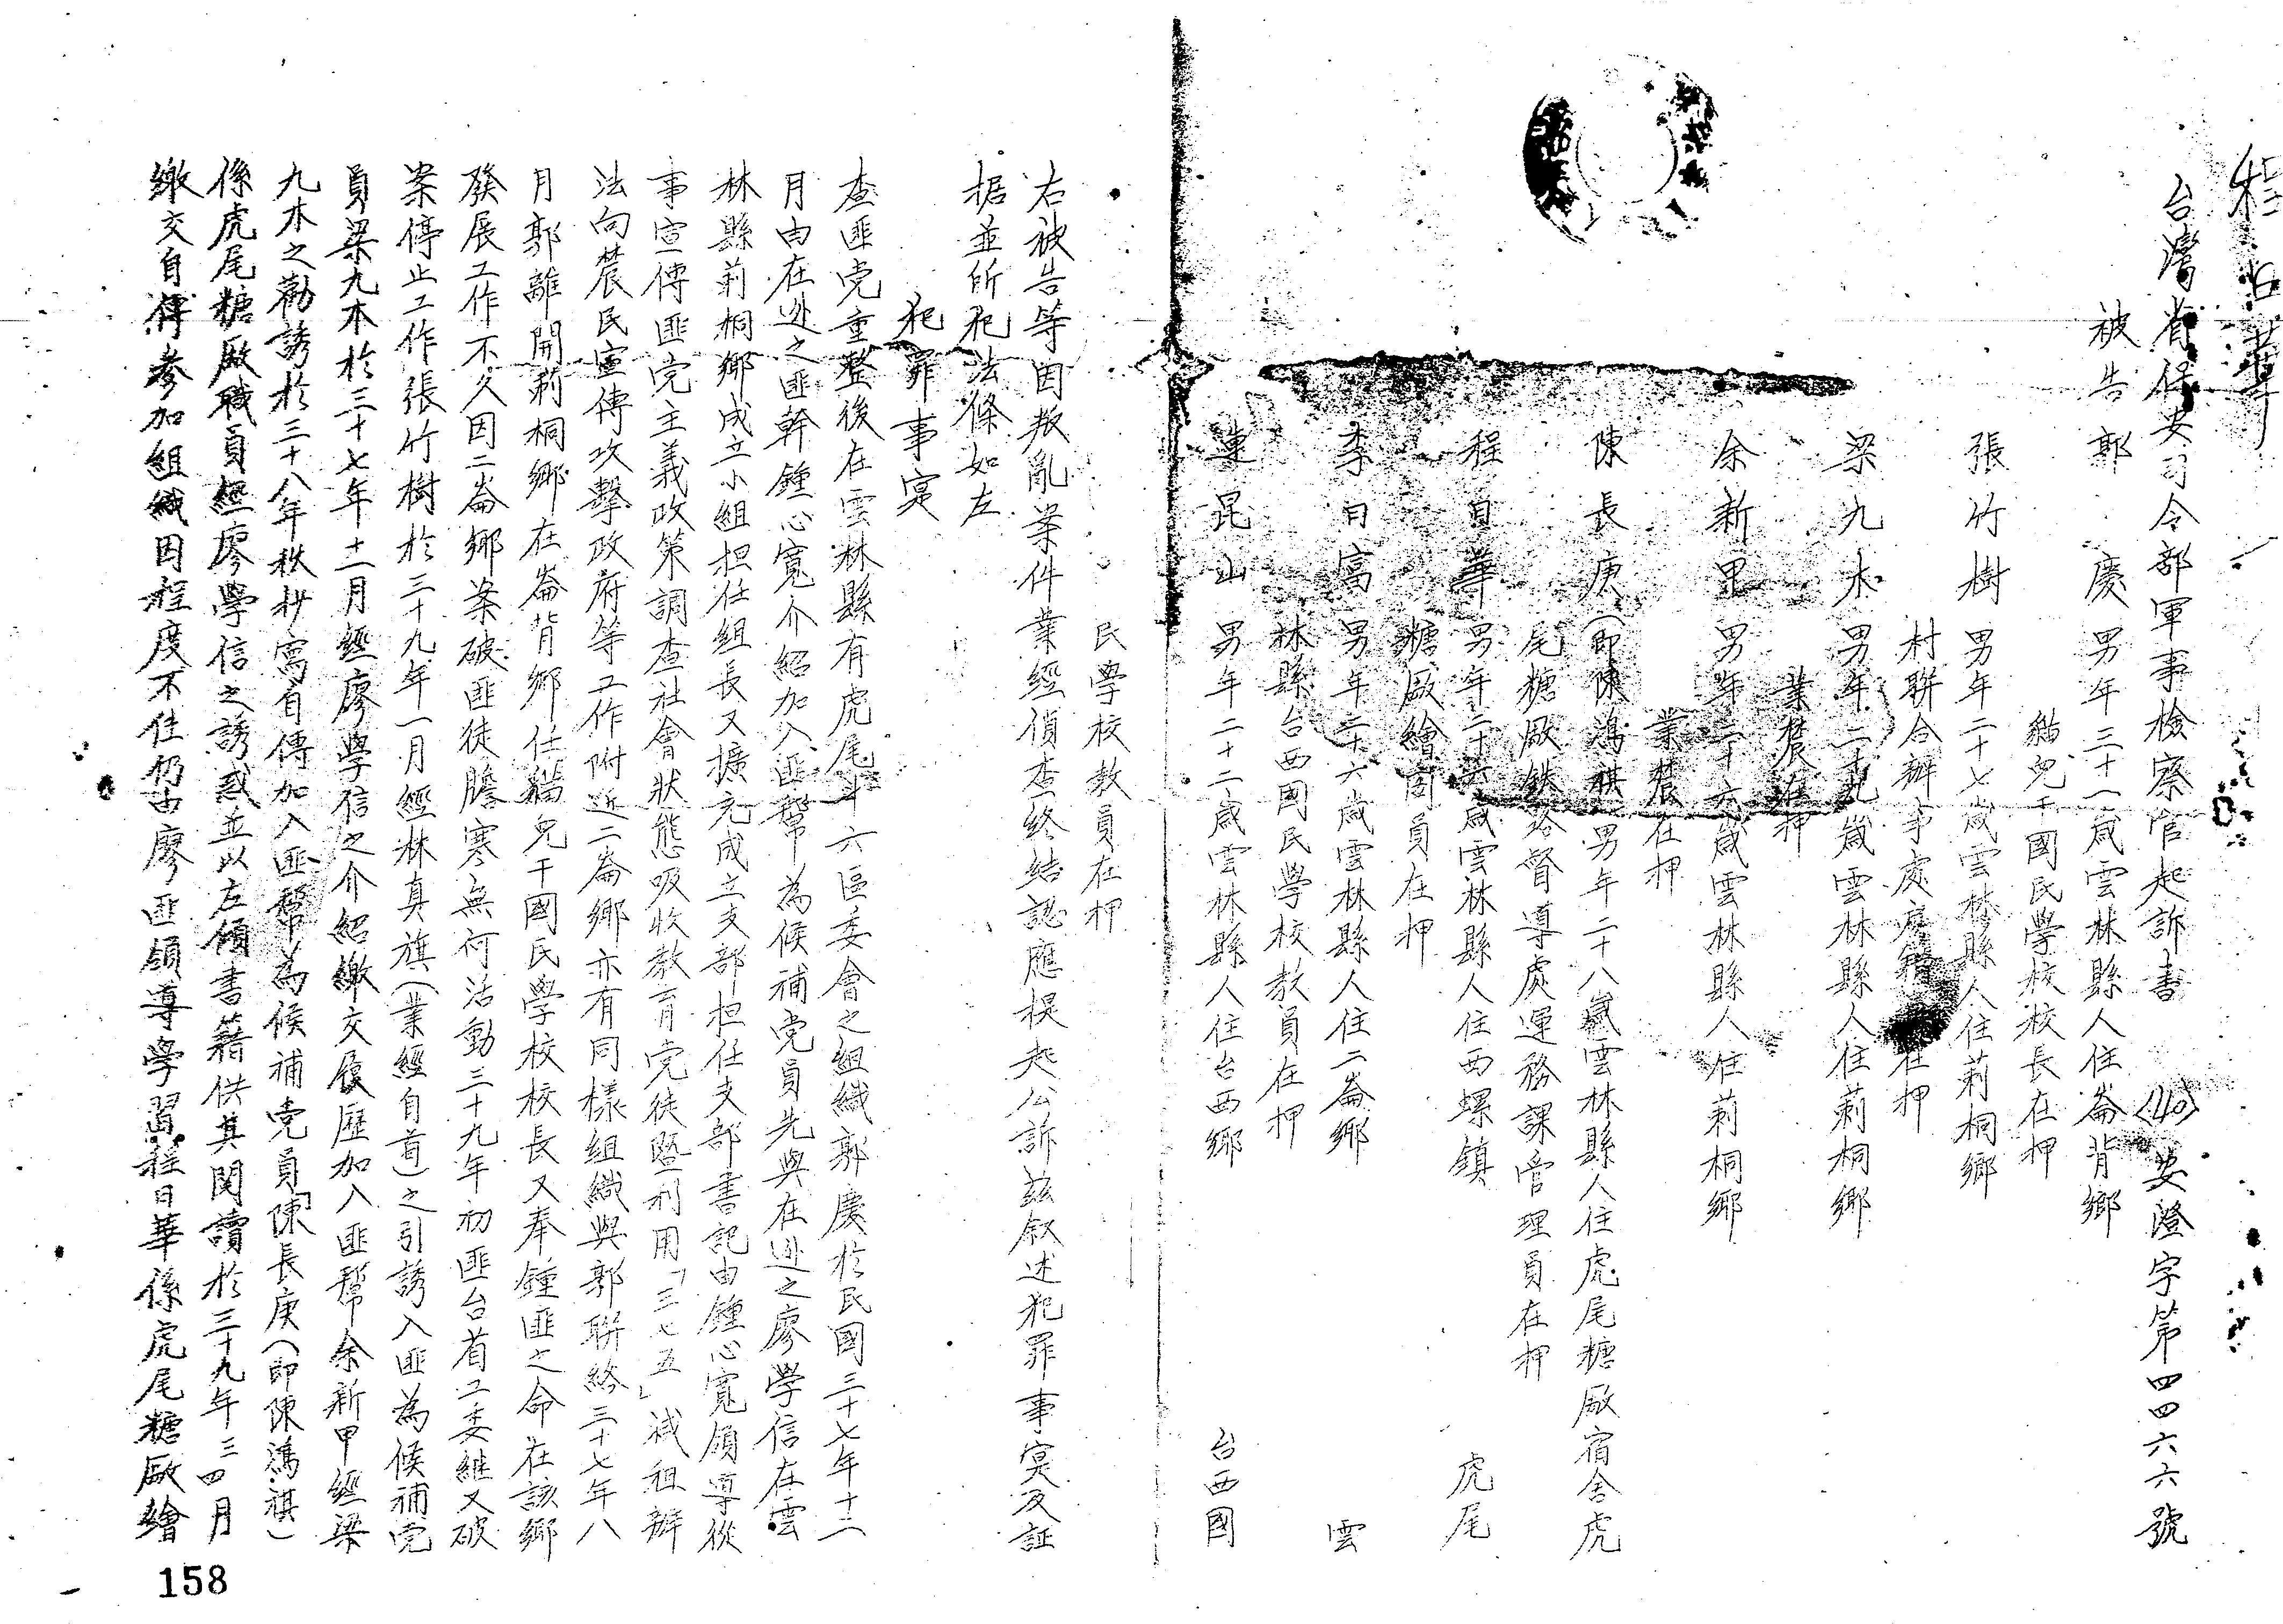 程日華
台灣省保安司令部軍事檢察官起訴書 (40)安澄字第四四六六號
被告 郭 慶 男年三十一歲雲林縣人住崙背鄉
貓兒干國民學校校長在押
張竹樹 男年二十七歲雲林縣人住莿桐鄉
村聯合辦事處 在押
梁九木 男年二十九歲雲林縣人住莿桐鄉
業農在押
余新甲 男年二十六歲雲林縣人住莿桐鄉
業農在押
陳長庚(即陳鴻祺)男年二十八歲雲林縣人住虎尾糖廠宿舍虎
尾糖廠鉄路督導處運務課管理員在押
程日華 男年二十六歲雲林縣人住西螺鎮 虎尾
糖廠繪圖員在押
李日富 男年二十六歲雲林縣人住二崙鄉 雲
林縣台西國民學校教員在押
連昆山 男年二十二歲雲林縣人住台西鄉 台西國
民學校教員在押
右被告等因叛亂案件業經偵查終結認應提起公訴茲叙述犯罪事実及証
据並所犯法條如左
犯罪事実
查匪党重整後在雲林縣有虎尾斗六區委會之組織郭慶於民國三十七年十二
月由在逃之匪幹鍾心寬介紹加入匪幫為候補党員先與在逃之廖學信在雲
林縣莿桐鄉成立小組担任組長又擴充成立支部担任支部書記由鍾心寬領導從
事宣傳匪党主義政策調查社會狀態吸收教育党徒暨利用「三七五」減租辦
法向農民宣傳攻擊政府等工作附近二崙鄉亦有同樣組織與郭聯絡三十七年八
月郭離開莿桐鄉在崙背鄉任貓兒干國民學校校長又奉鍾匪之命在該鄉
發展工作不久因二崙鄉案破匪徒膽寒無何活動三十九年初匪台省工委継又破
案停止工作張竹樹於三十九年一月經林真旗(業經自首)之引誘入匪為候補党
員梁九木於三十七年十一月經廖學信之介紹繳交履歷加入匪幫余新甲經梁
九木之勸誘於三十八年秋抄寫自傳加入匪幫為候補党員陳長庚(即陳鴻祺)
係虎尾糖廠職員經廖學信之誘惑並以左傾書籍供其閱讀於三十九年三四月
繳交自傳參加組織因程度不佳仍由廖匪領導學習程日華係虎尾糖廠繪
158